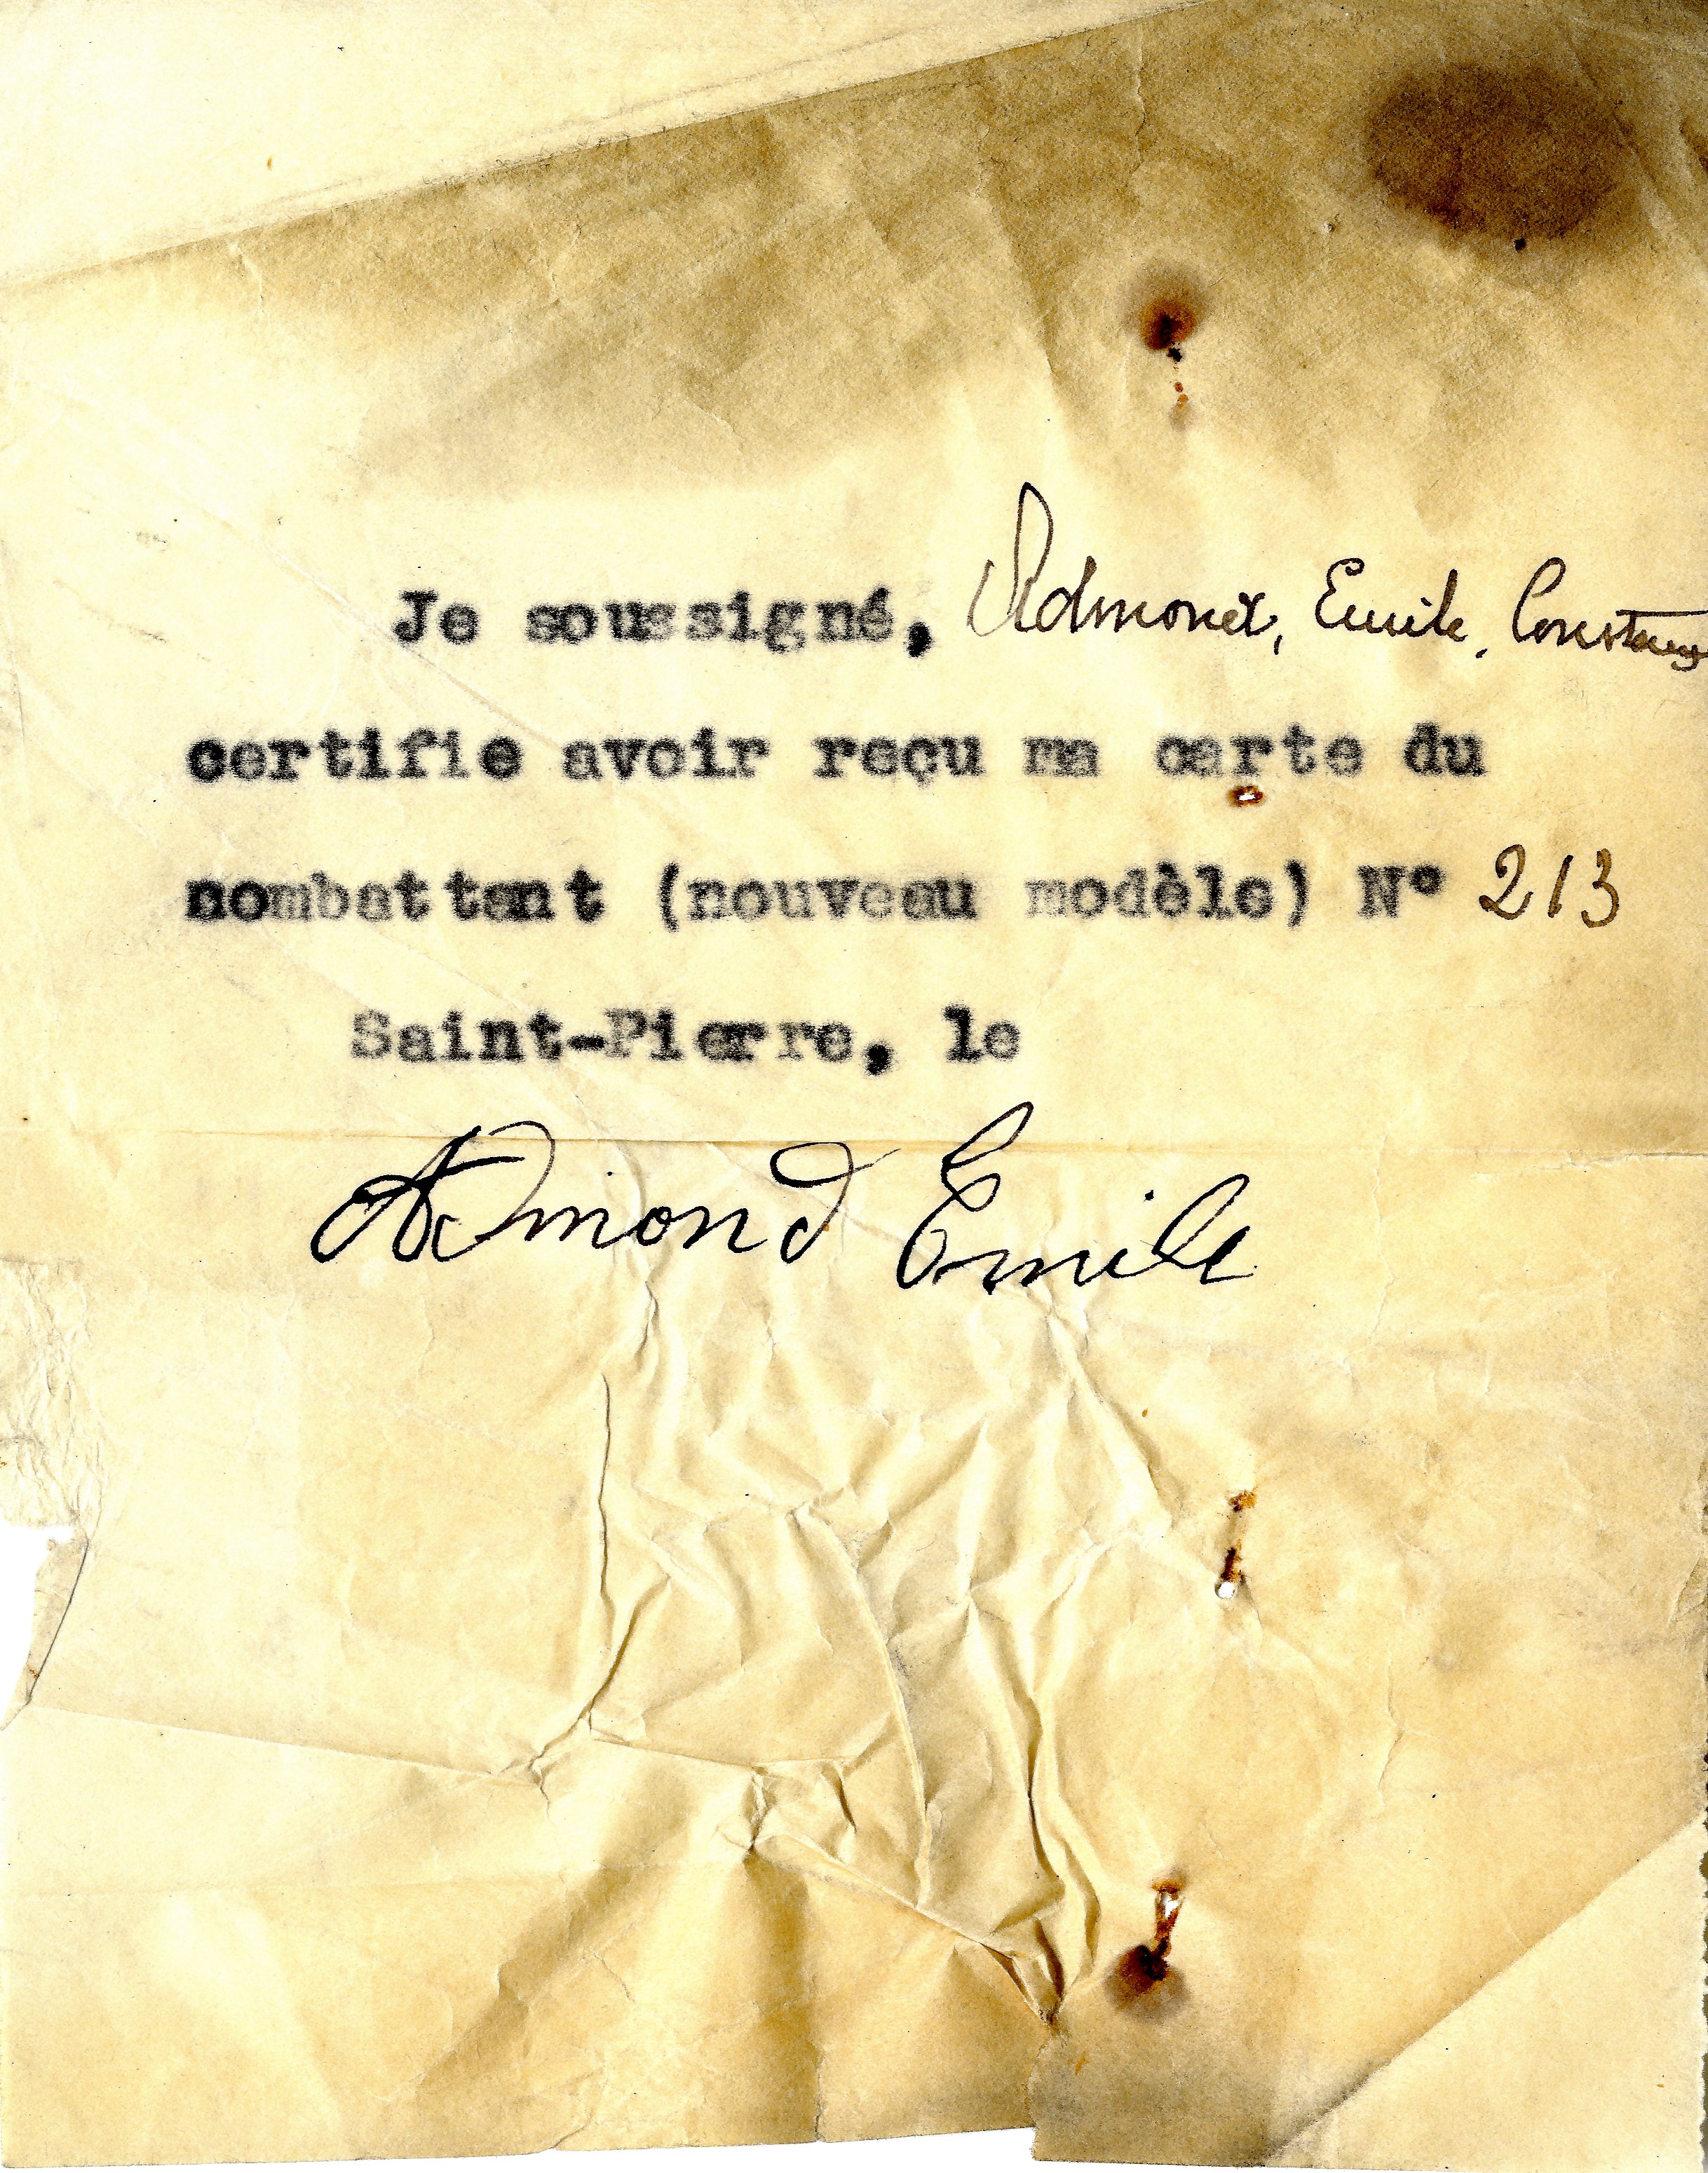 Je soussigné, Admond, Emile, Constant
certifie avoir reçu ma carte du
nombattant (nouveau modèle) N° 213
Saint-Pierre, le
Admond Emile